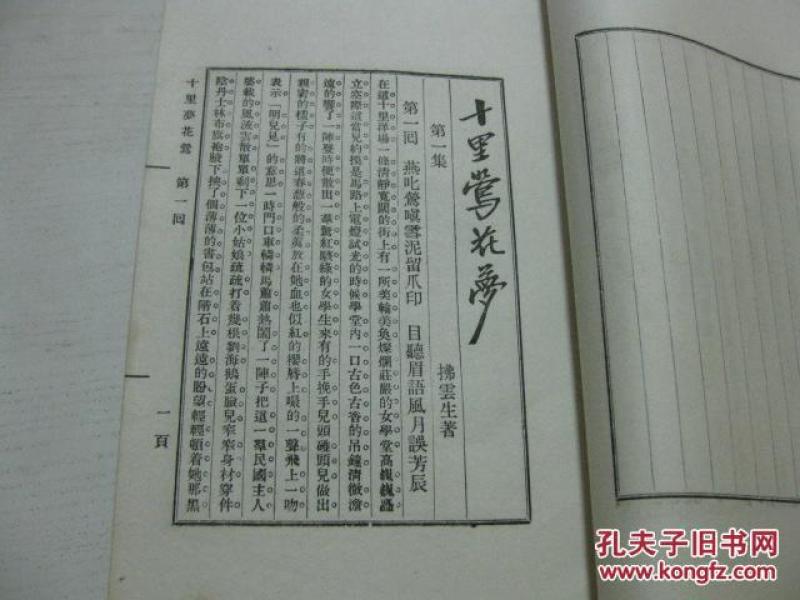 十里鶯花夢
第一集
拂雲生著
第一回 燕叱鶯嗔雪泥留爪印 目聽眉語風月誤芳辰
在這十里洋場一條清靜寬闊的街上有一所美輪美奐燦爛莊嚴的女學堂高巍巍矗
立空際這當兒約摸是馬路上電燈試光的時候學堂內一口古色古香的吊鐘清徹滾
遠的響了一陣登時便散出一羣驚紅駭綠的女學生來有的手挽手兒頭碰頭兒做出
親密的樣子有的將這春葱般的柔荑放在她血也似紅的櫻唇上啜的一聲飛上一吻
表示「明兒見」的意思一時門口車轔轔馬蕭蕭熱鬧了一陣子把這一羣民國主人
婆載的風流雲散單單剩下一位小姑娘疏疏打着幾根劉海鵝蛋臉兒窄窄身材穿件
陰丹士林布旗袍脇下挾了個薄薄的書包站在階石上遠遠的盼望輕輕頓着她那黑
十里夢花鶯 第一回
一頁
孔夫子旧书网
www.kongfz.com